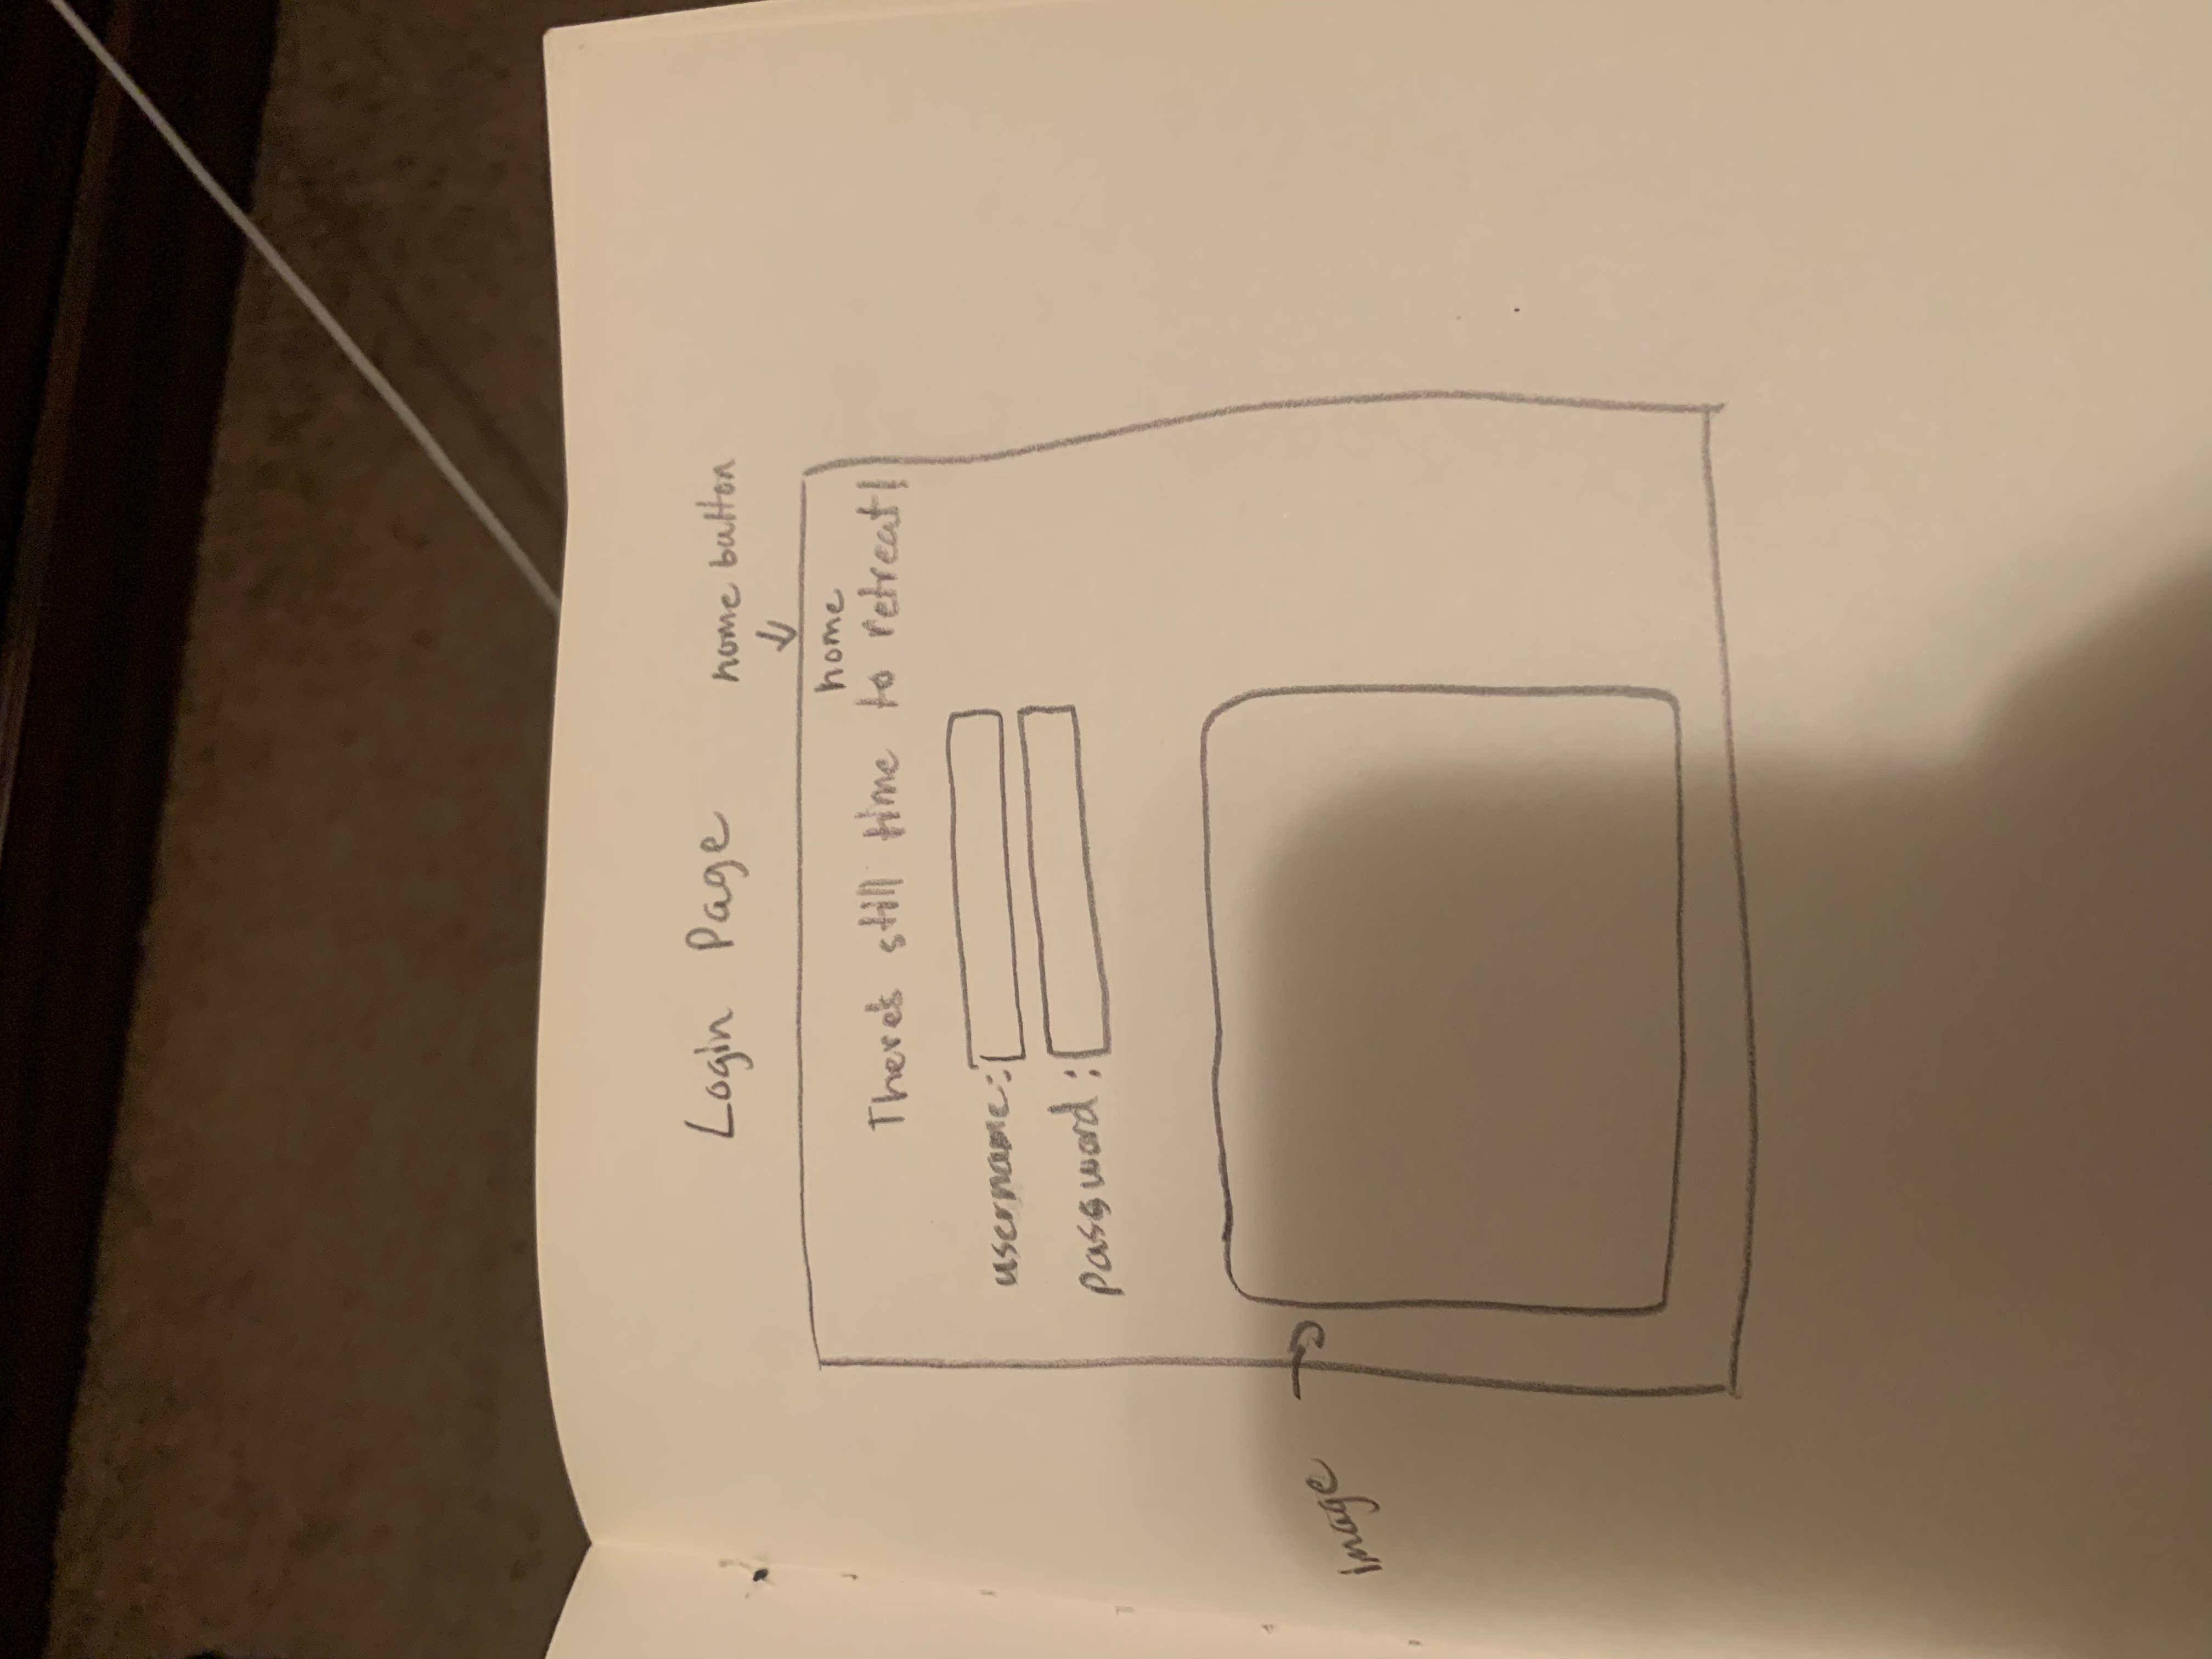 Login Page
home button
home
There's still time to retreat!
username:
password:
Image